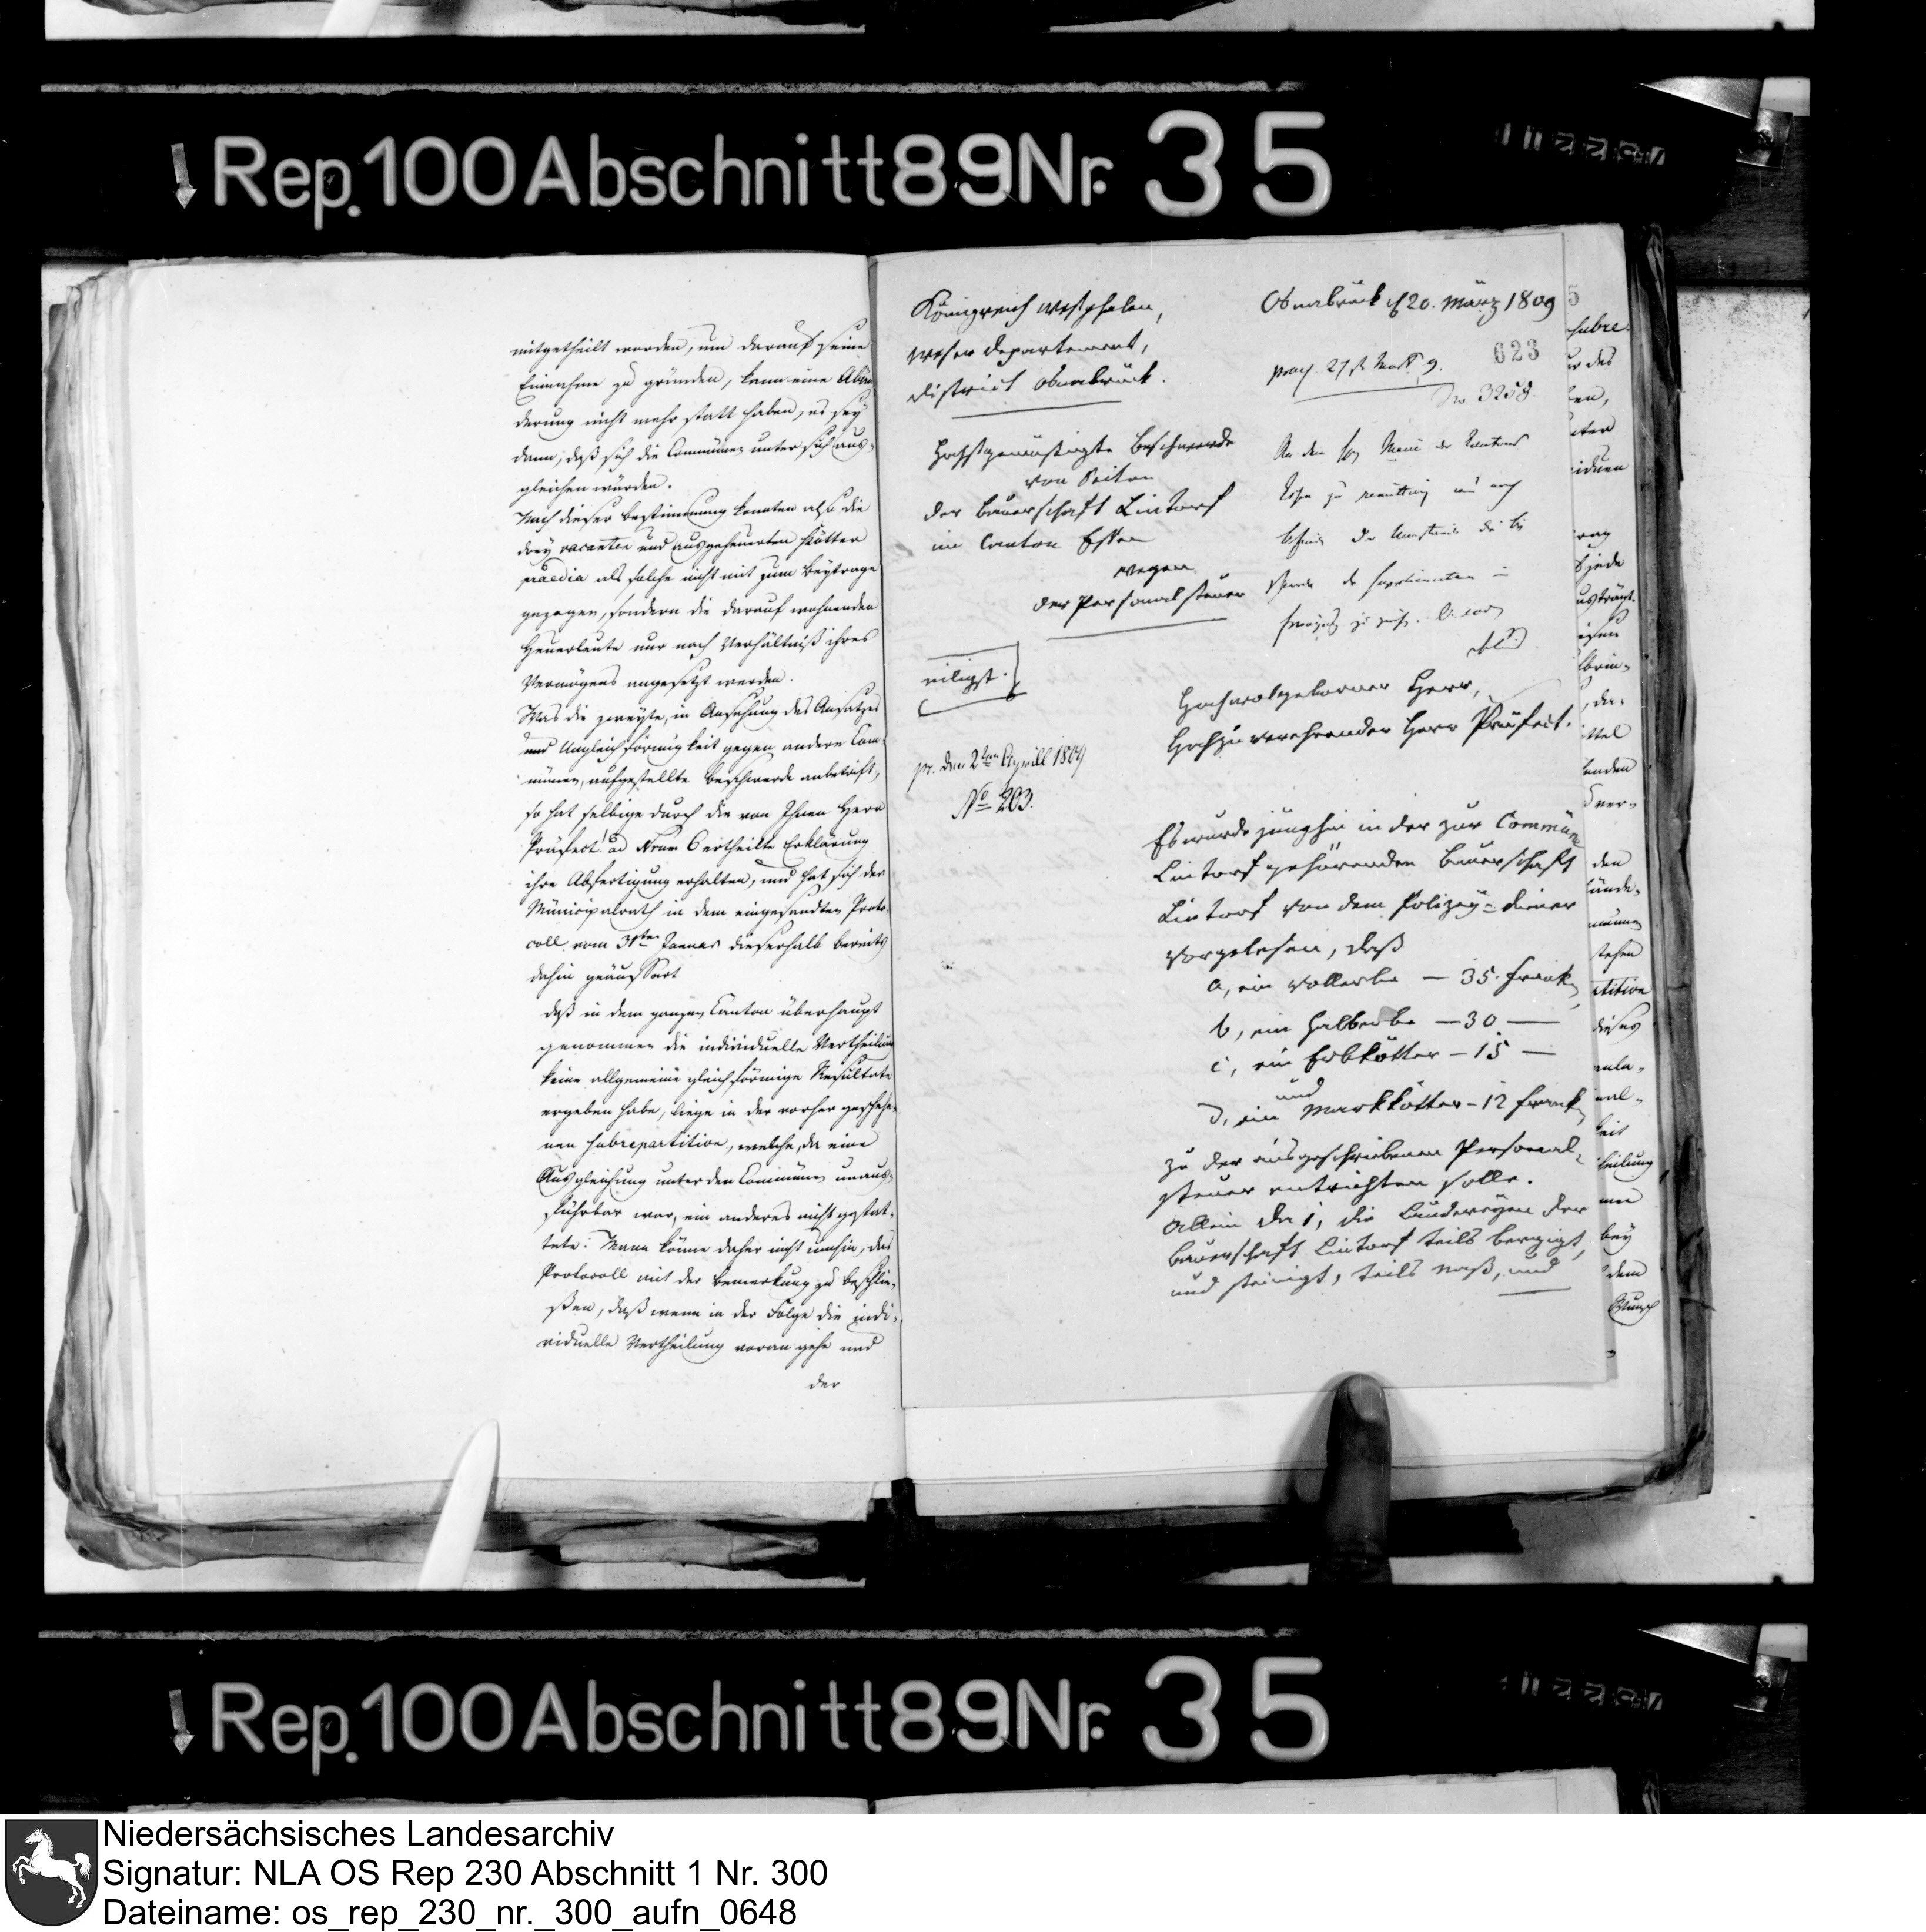 Rep. 100 Abschnitt 89 Nr. 35
mitgetheilt worden, um darauf seine
Einnahme zu gründen, kann eine Abän
derung nicht mehr statt haben, es sey
dann, daß sich die Communen unter sich aus-
gleichen würden.
Nach dieser Bestimmung konnten also die
drey vacanten und ausgeheuerten Kötter
praedia als solche nicht mit zum Beytrage
gezogen, sondern die darauf wohnenden
Heuerleute nur nach Verhältniß ihres
Vermögens angesetzt werden.
Was die zweyte, in Ansehung des Ansatzes
und Ungleichförmigkeit gegen andere Com-
munen, aufgestellte Beschwerde anbetrift,
so hat selbige durch die von Ihnen Herr
Präfect! ad Num 6 ertheilte Erklärung
ihre Abfertigung erhalten, und hat sich der
Municipalrath in dem eingesandten Proto-
coll vom 31ten Januar dieserhalb bereits
dahin geäussert
daß in dem ganzen Canton überhaupt
genommen die individuelle Vertheilung
keine allgemeine gleichförmige Resultate
ergeben habe, liege in der vorher geschehe-
nen Subrepartition, welche, da eine
Ausgleichung unter den Communen unaus-
führbar war, ein anderes nicht gestat-
tete: Mann könne daher nicht umhin, das
Protocoll mit der Bemerkung zu beschlie-
ßen, daß wenn in der Folge die indi-
viduelle Vertheilung voran gehe und
der
Königreich Westphalen,
Weser Departement,
District Osnabrück.
Osnabrück d 20. März 1809
623
praes. 27 9.
No 3258.
Höchstgemüßigte Beschwerde
von Seiten
der Bauerschaft Lintorf
im Canton Essen
wegen
der Personalsteuer
An den Hrn Maire des Cantons
Essen zu
der
eiligst.
pr. den 2ten Aprill 1809
No 203.
Hochwolgeborner Herr,
Hochzuverehrender Herr Präfect.
Es wurde jünghin in der zur Commüne
Lintorf gehörenden Bauerschaft
Lintorf von dem Polizey-diener
vorgelesen, daß
a, ein Vollerbe — 35. Frank,
b, ein Halberbe — 30 —
c, ein Erbkötter — 15 —
und
d, ein Markkötter — 12 Frank,
zu der ausgeschriebenen Personal-
steuer entrichten solle.
Allein da 1, die Ländereyen der
Bauerschaft Lintorf teils bergigt,
und steinigt, teils naß, und
Rep. 100 Abschnitt 89 Nr. 35
Niedersächsisches Landesarchiv
Signatur: NLA OS Rep 230 Abschnitt 1 Nr. 300
Dateiname: os_rep_230_nr._300_aufn_0648